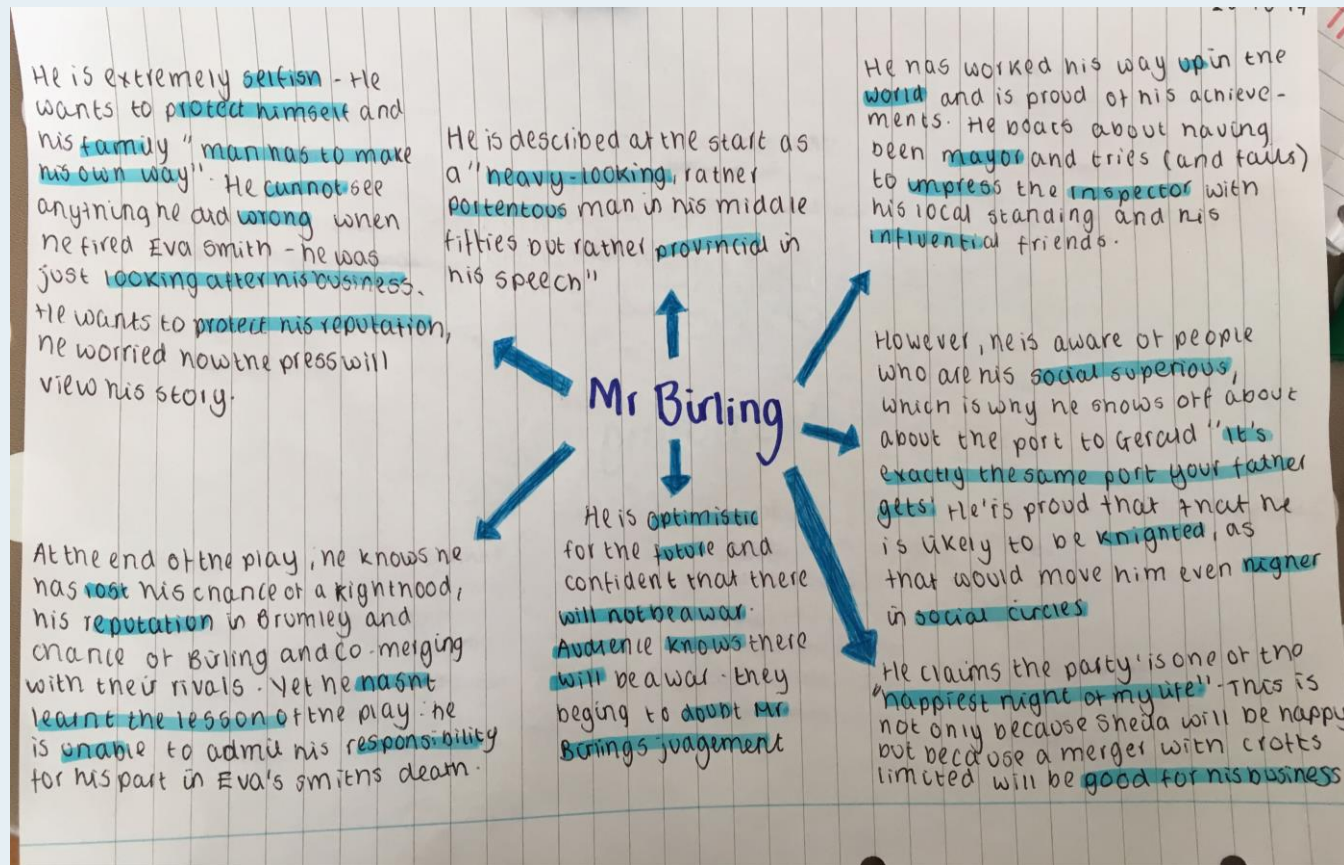 He is extremely selfish - He
wants to protect himself and
his family "man has to make
his own way". He cannot see
anything he did wrong when
he fired Eva Smith - he was
just looking after his business.
He wants to protect his reputation,
he worried how the press will
view his story.
He is described at the start as
a "heavy-looking, rather
portentous man in his middle
fifties but rather provincial in
his speech"
He has worked his way up in the
world and is proud of his achieve-
ments. He boats about having
been mayor and tries (and fails)
to impress the inspector with
his local standing and his
influential friends.
Mr Birling
However, he is aware of people
who are his social superious,
which is why he shows off about
about the port to Gerald "It's
exactly the same port your father
gets! He'is proud that that he
is likely to be knighted, as
that would move him even higher
in social circles
At the end of the play, he knows he
has lost his chance of a kighthood,
his reputation in Brumley and
chance of Birling and co. merging
with their rivals. Yet he hasnt
learnt the lesson of the play: he
is unable to admit his responsibility
for his part in Eva's smiths death.
He is optimistic
for the future and
confident that there
will not be a war.
Audience knows there
will be a war. they
beging to doubt Mr
Birlings judgement
He claims the party is one of the
"happiest night of my life" - This is
not only because Sheila will be happy
but because a merger with crofts
limited will be good for his business